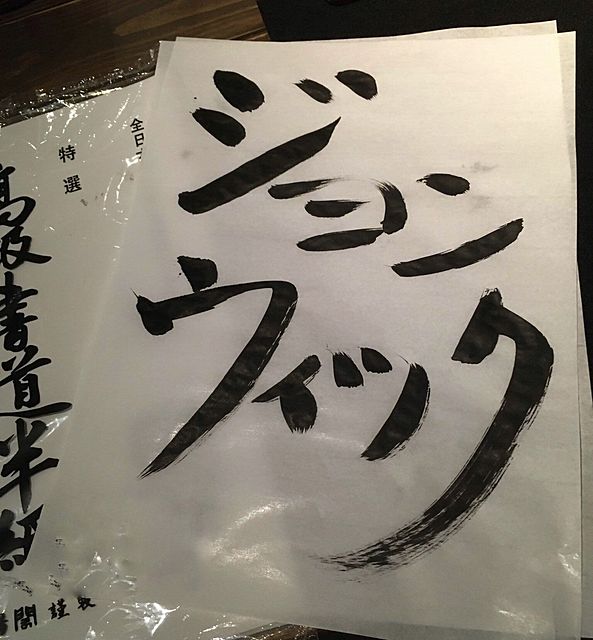 ジョン
ウィック
全日
特選
高級書道半紙
閣謹製